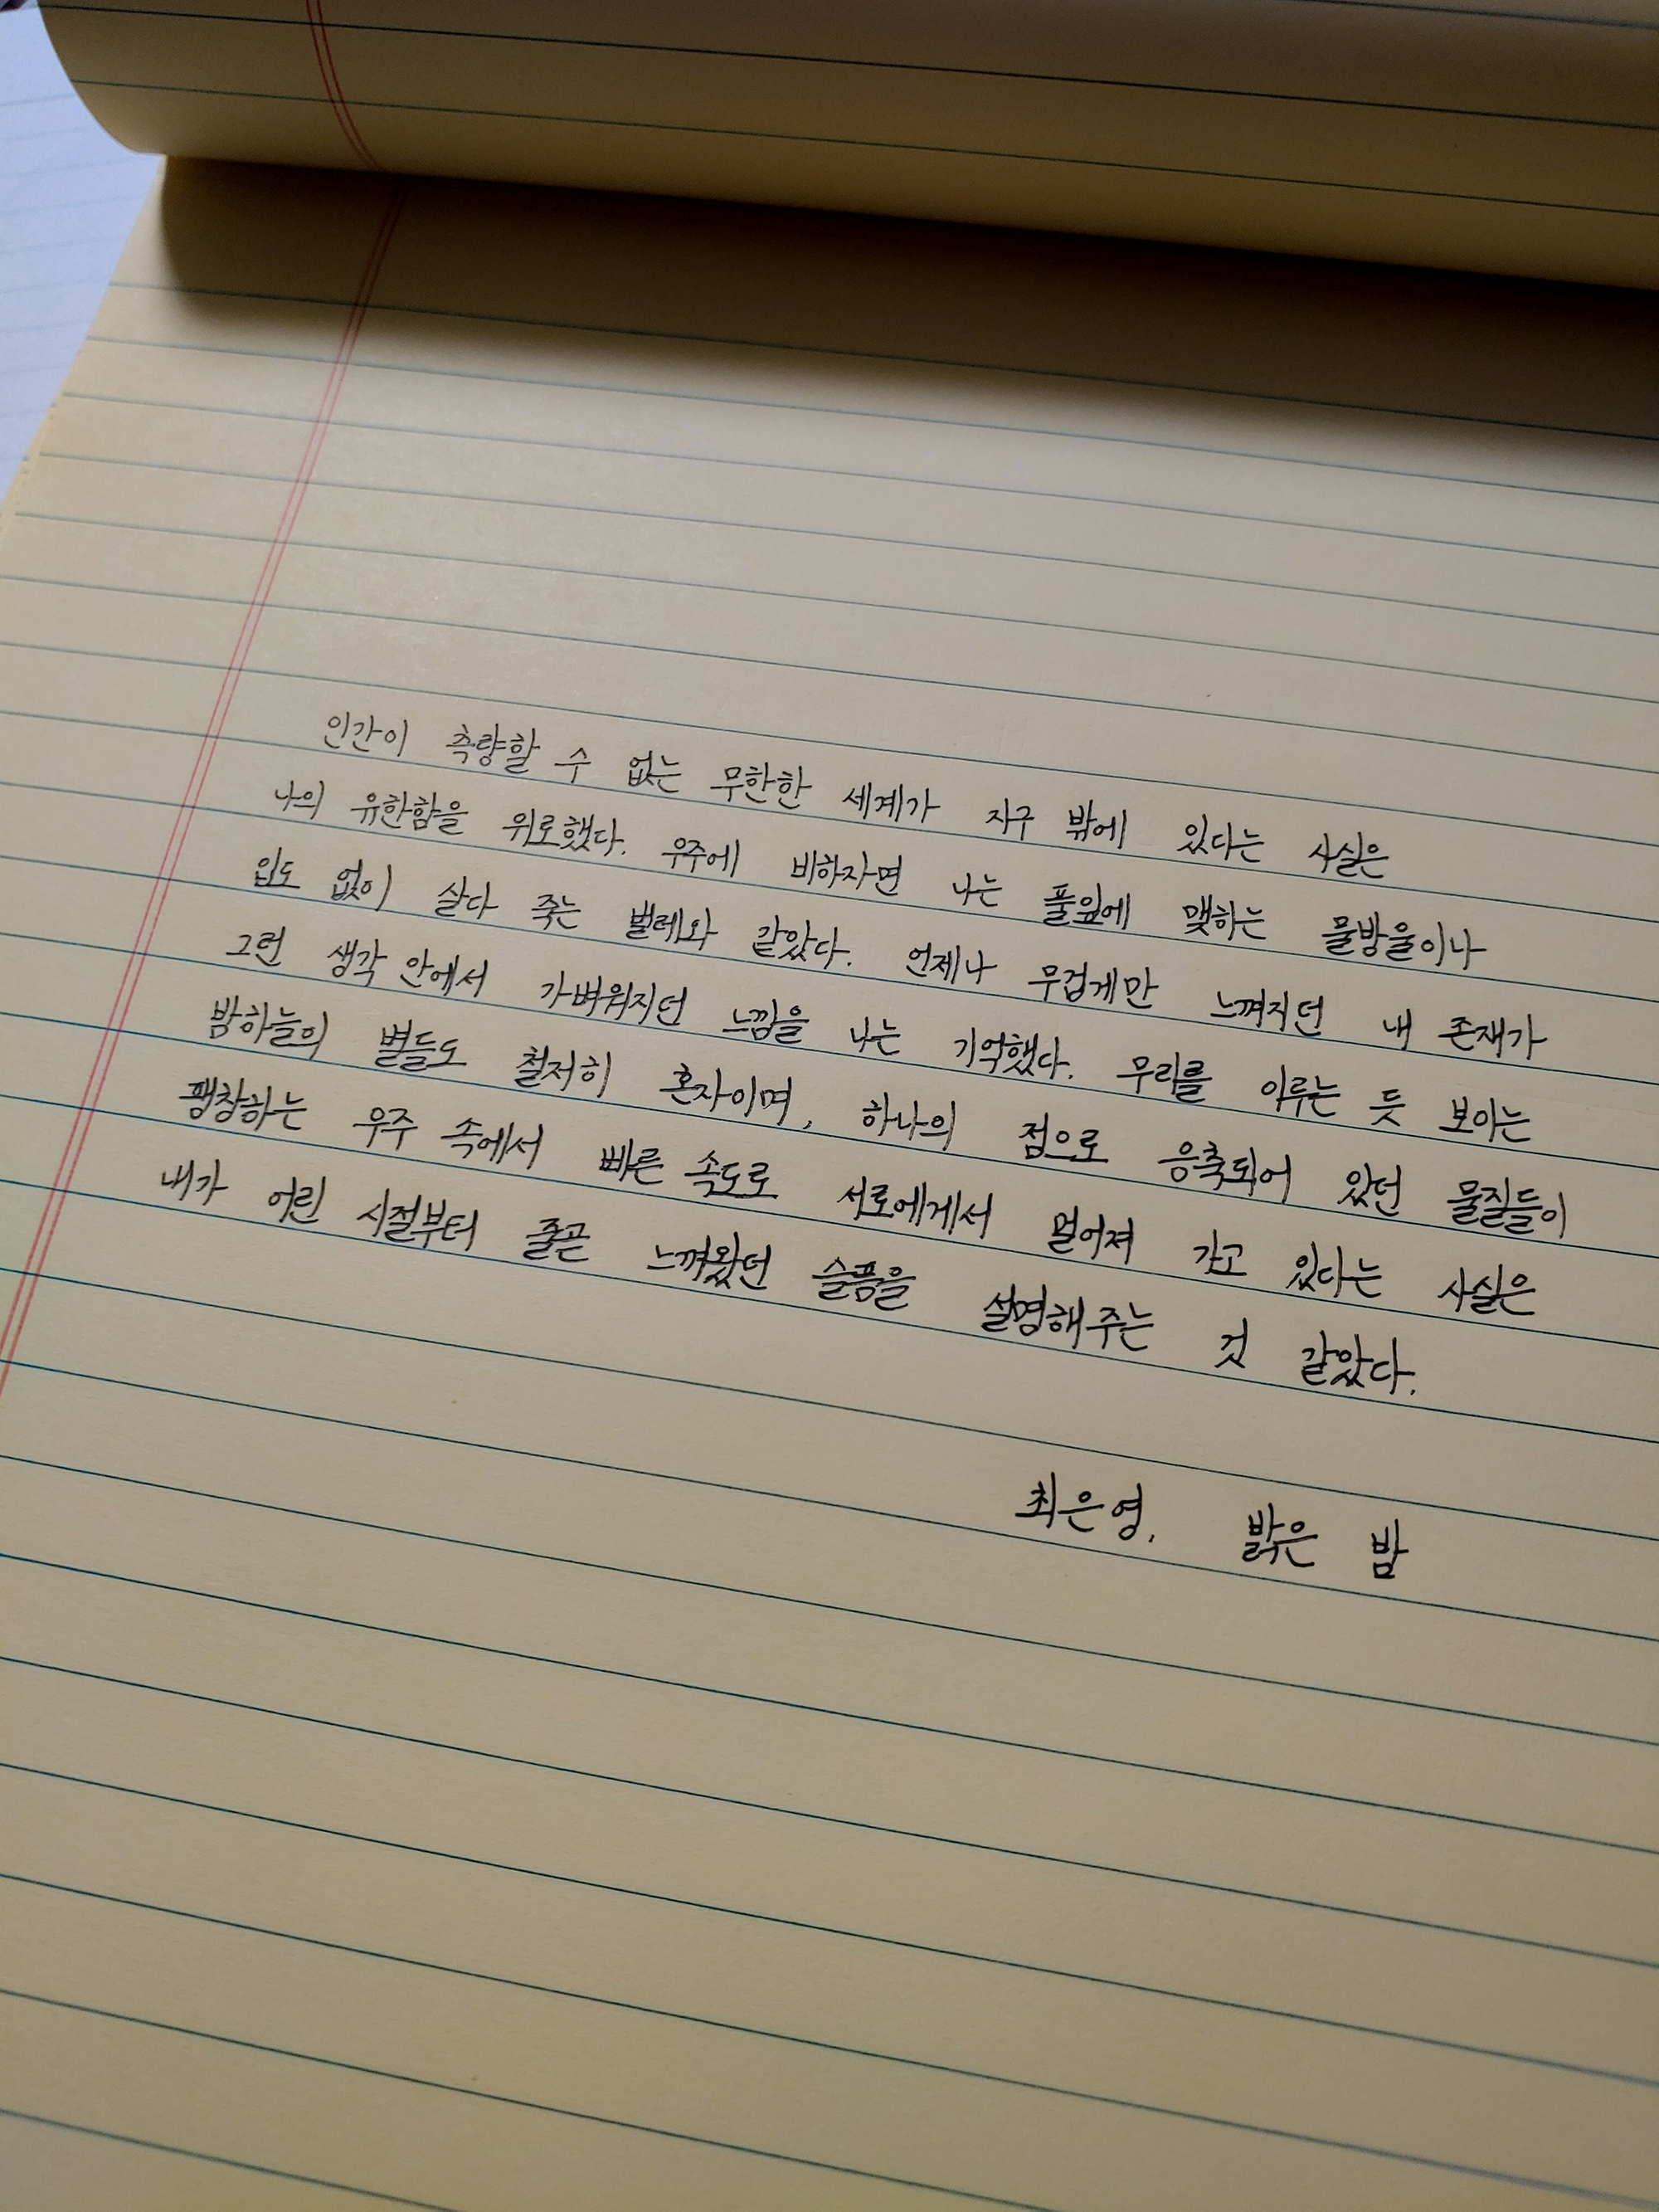 인간이 측량할 수 없는 무한한 세계가 지구 밖에 있다는 사실은
나의 유한함을 위로했다. 우주에 비하자면 나는 풀잎에 맺하는 물방울이나
입도 없이 살다 죽는 벌레와 같았다. 언제나 무겁게만 느껴지던 내 존재가
그런 생각 안에서 가벼워지던 느낌을 나는 기억했다. 무리를 이루는 듯 보이는
밤하늘의 별들도 철저히 혼자이며, 하나의 점으로 응축되어 있던 물질들이
팽창하는 우주 속에서 빠른 속도로 서로에게서 멀어져 가고 있다는 사실은
내가 어린 시절부터 줄곧 느껴왔던 슬픔을 설명해주는 것 같았다.
최은영. 밝은 밤